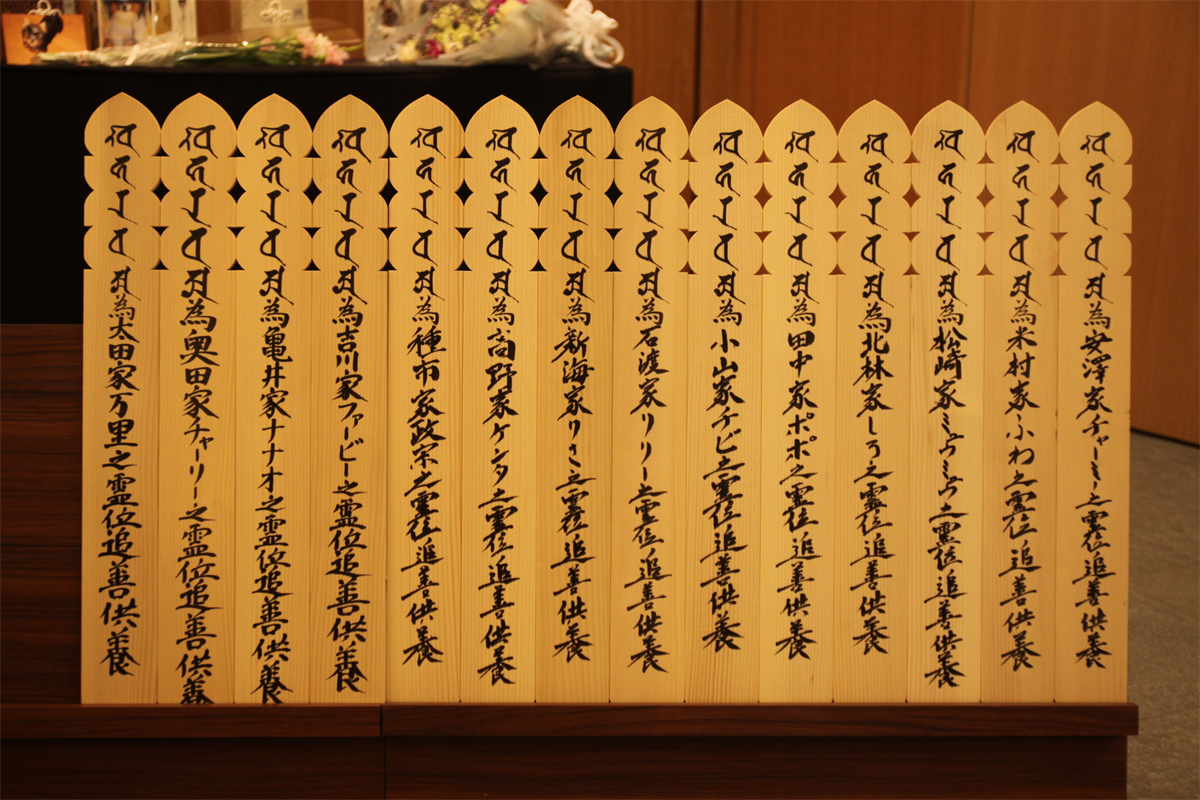 為安澤家チャーミー之霊位追善供養
為米村家ふわ之霊位追善供養
為松崎家ミュウミュウ之霊位追善供養
為北林家しろ之霊位追善供養
為田中家ポポ之霊位追善供養
為小山家チビ之霊位追善供養
為石渡家リリー之霊位追善供養
為新海家之霊位追善供養
為高野家ケンタ之霊位追善供養
為種市家政宗之霊位追善供養
為吉川家ファービー之霊位追善供養
為亀井家ナナオ之霊位追善供養
為奥田家チャーリー之霊位追善供養
為太田家万里之霊位追善供養